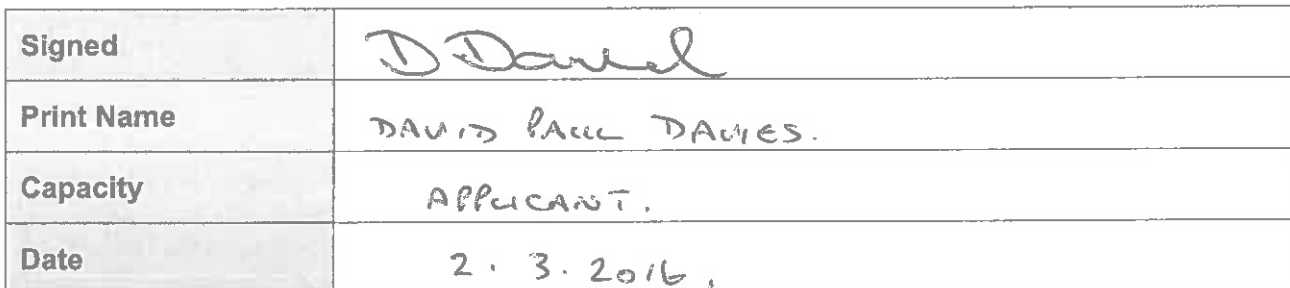 Signed D Daniel
Print Name DAVID PAUL DAVIES.
Capacity APPLICANT.
Date 2. 3. 2016.